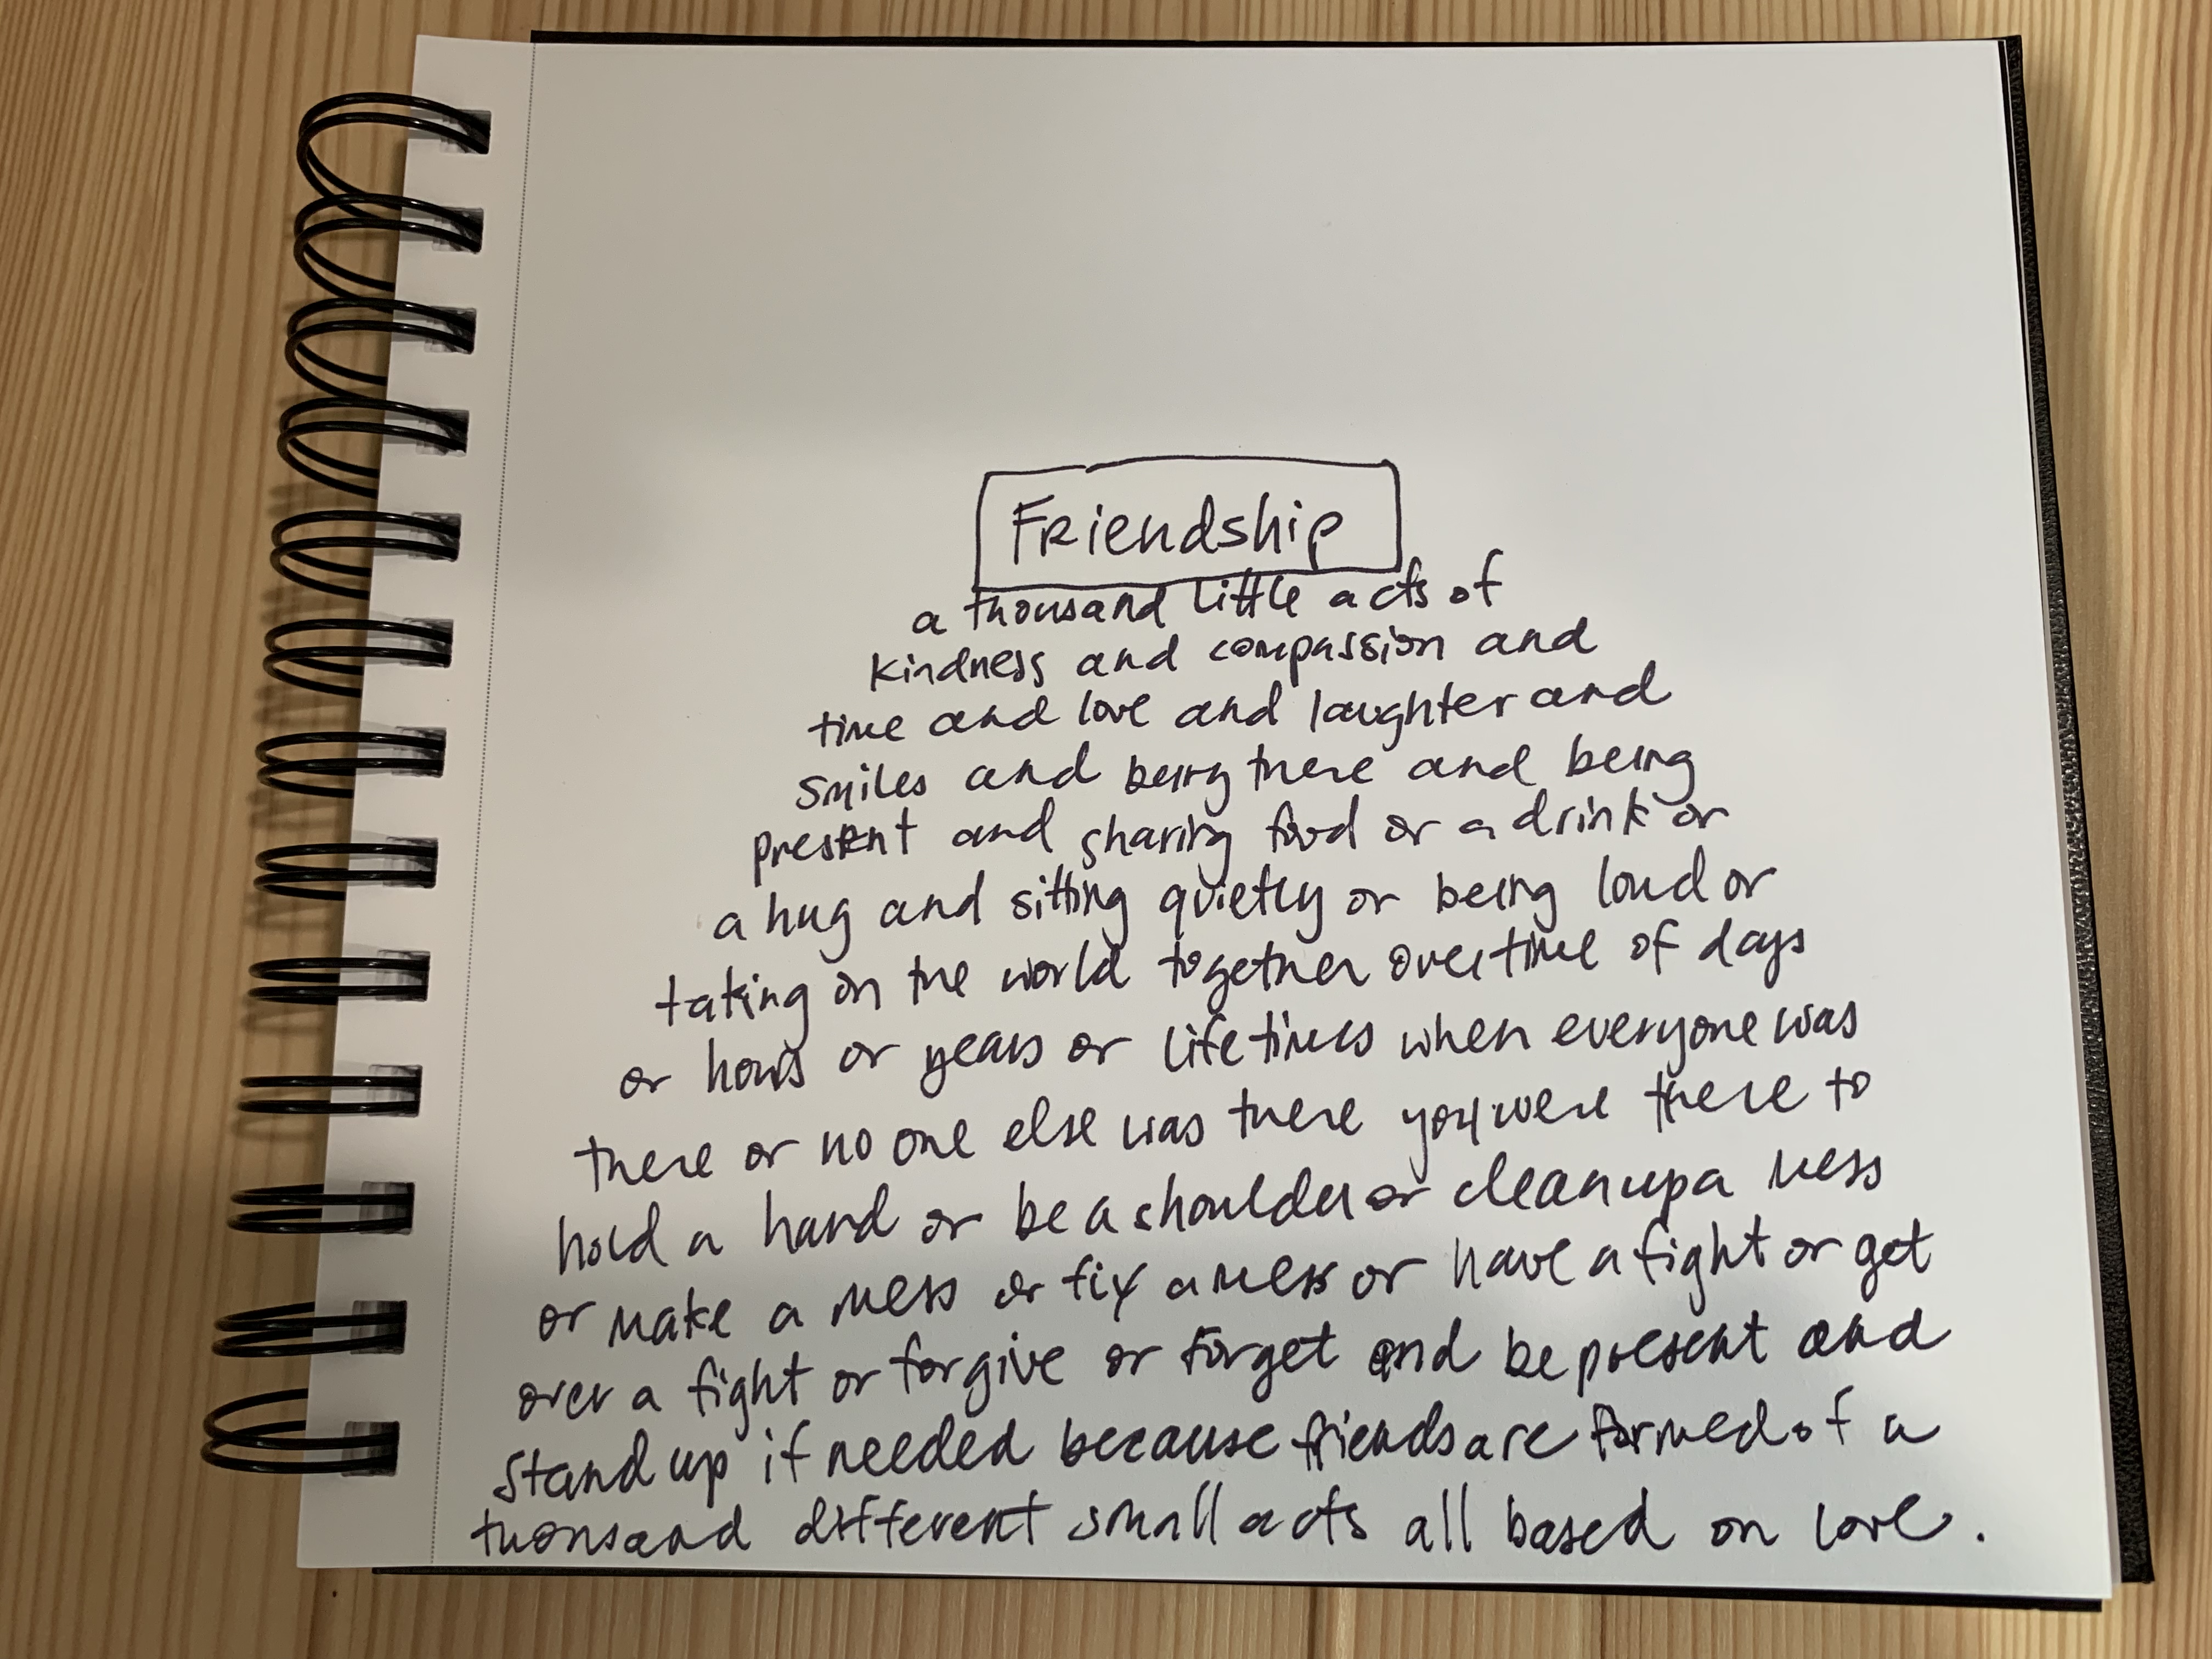 Friendship
a thousand little acts of
kindness and compassion and
time and love and laughter and
smiles and being there and being
present and sharing food or a drink or
a hug and sitting quietly or being loud or
taking on the world together overtime of days
or hours or years or lifetimes when everyone was
there or no one else was there you were there to
hold a hand or be a shoulder or clean up a mess
or make a mess or fix a mess or have a fight or get
over a fight or forgive or forget and be present and
stand up if needed because friends are formed of a
thousand different small acts all based on love.